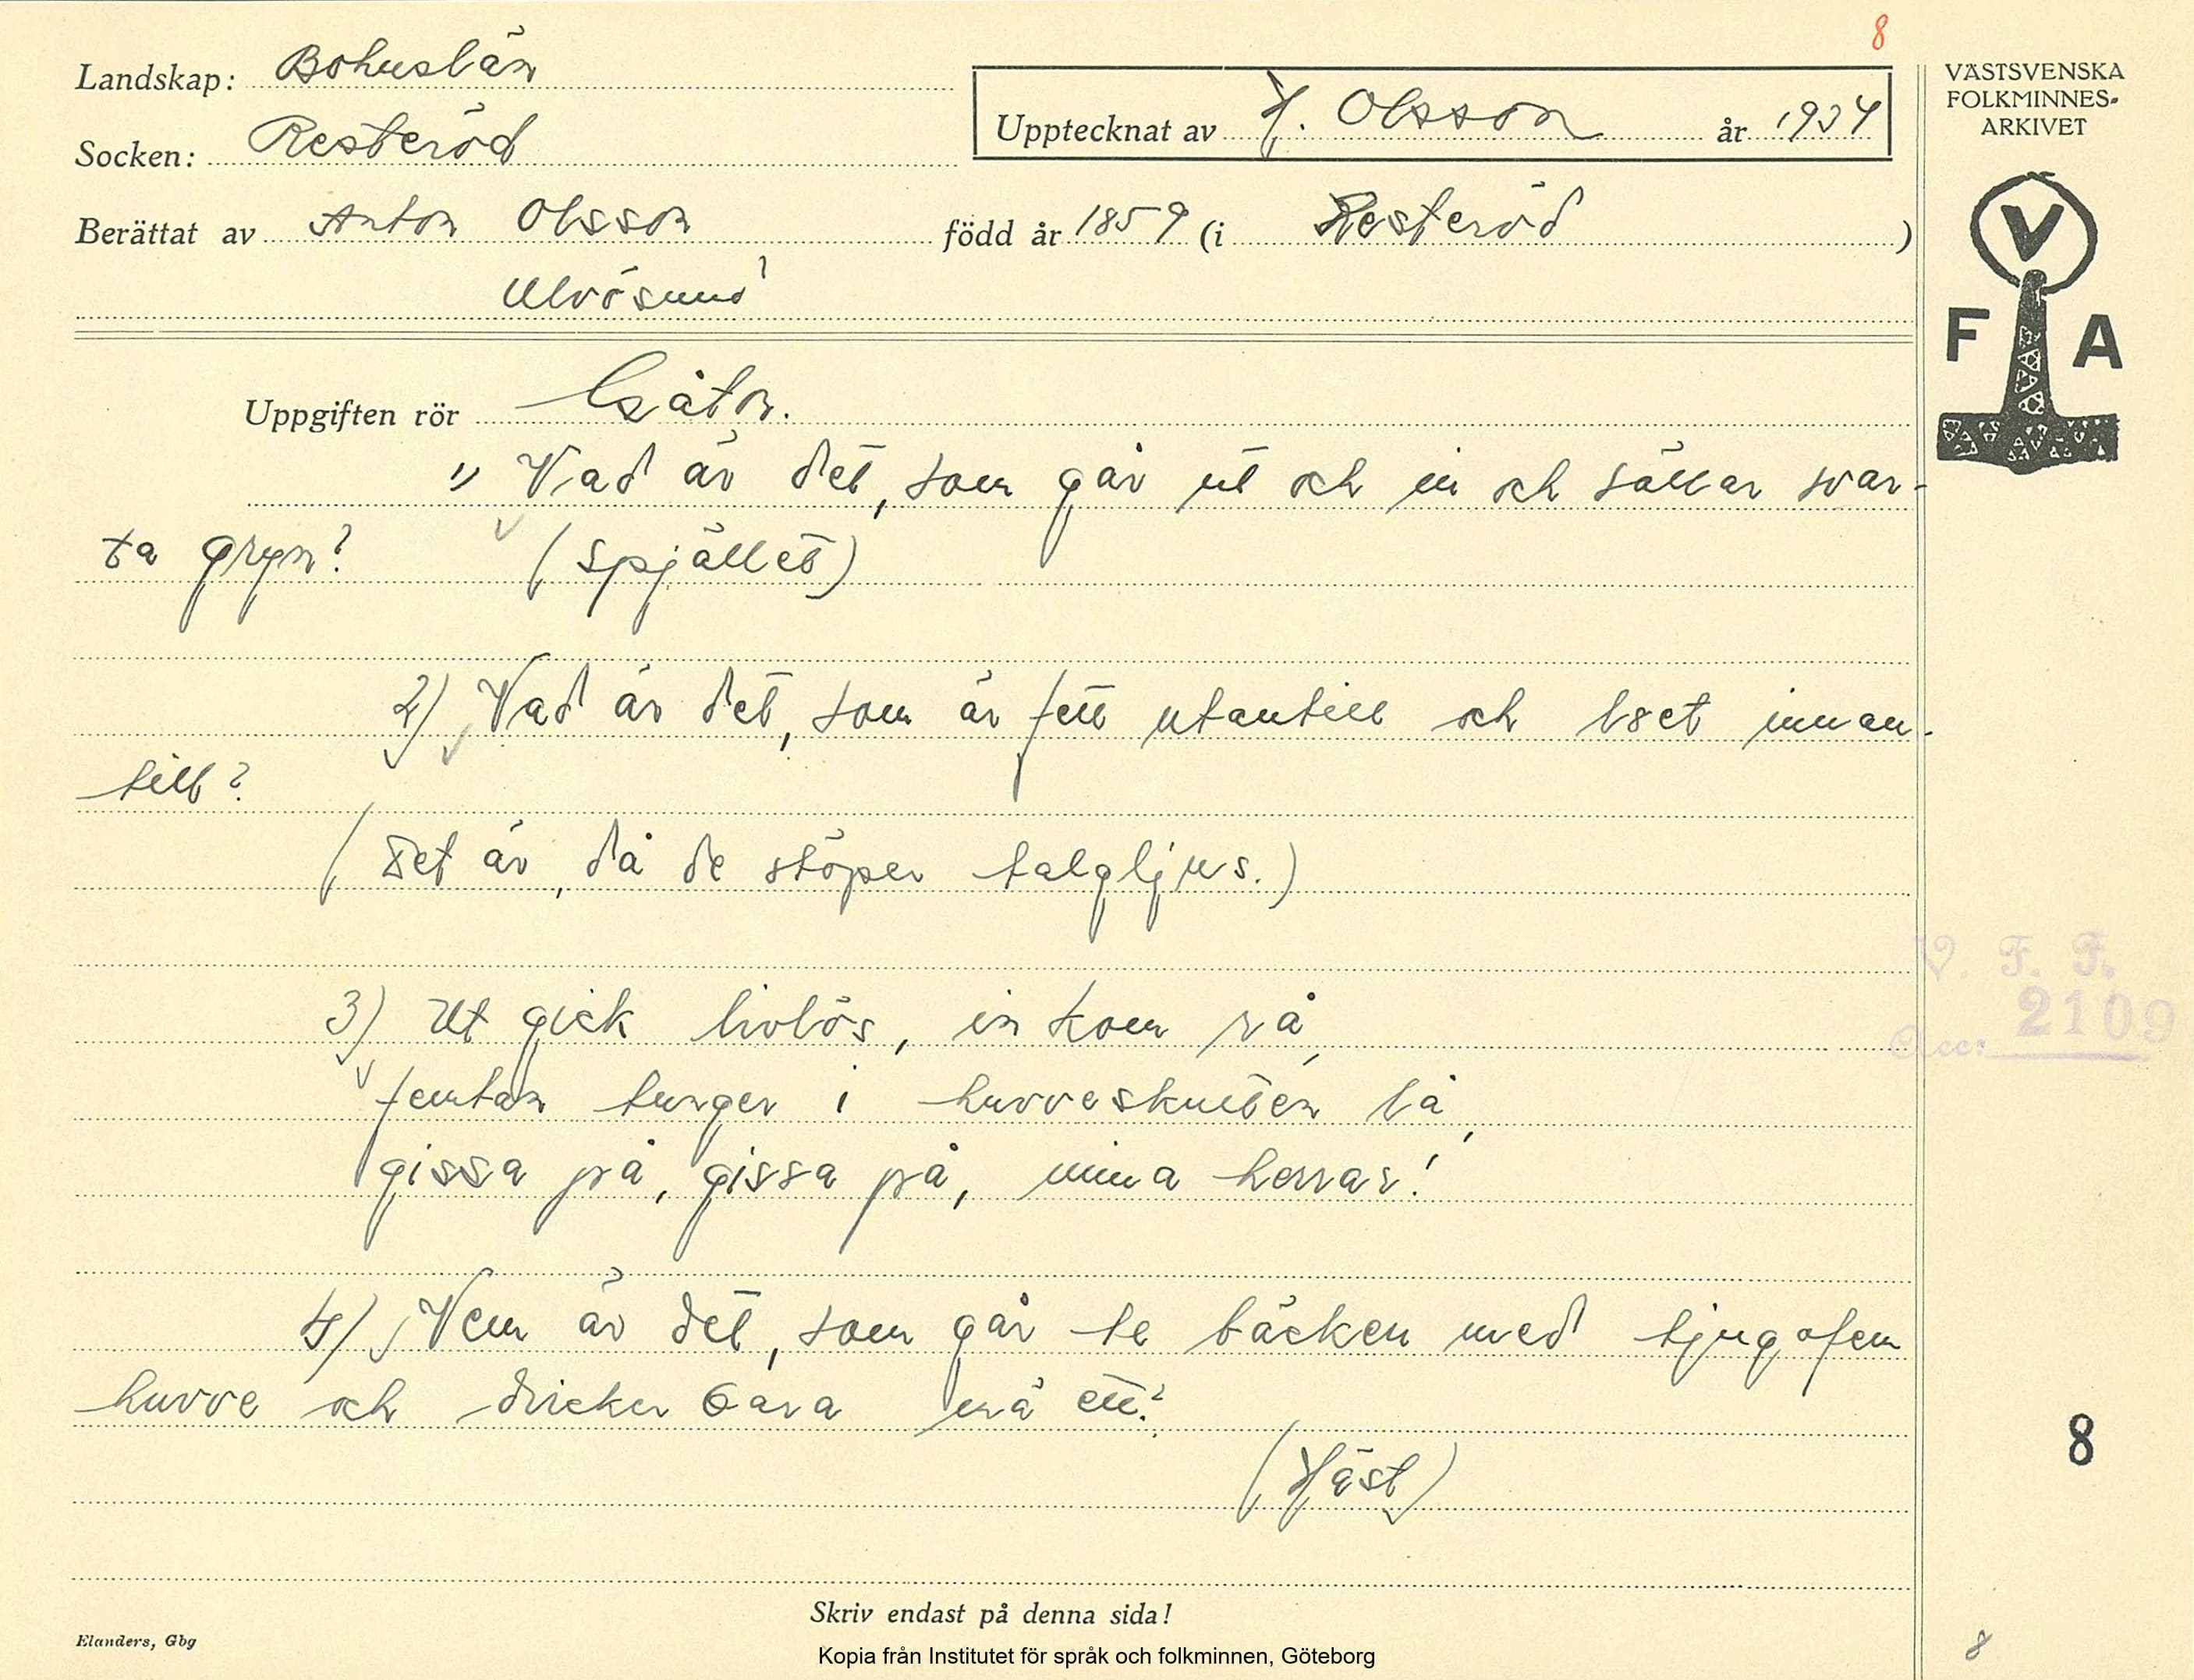 8
Landskap: Bohuslän
Socken: Resteröd
Upptecknat av H. Olsson år 1934
Berättat av Anton Olsson född år 1859 (i Resteröd)
Ulvösund
VÄSTSVENSKA
FOLKMINNES-
ARKIVET
V
F A
Uppgiften rör Gåtor.
1) Vad är det, som går ut och in och sållar svar-
ta gryn? (spjället)
2) Vad är det, som är fett utantill och löet innan-
till?
(Det är, då de stöper talgljus.)
3) Ut gick livlös, in kom rå,
femtan tunger i huvveskulten lå,
gissa på, gissa på, mina herrar!
4) Vem är det, som går te bäcken med tjugofem
huvve och dricker bara må ett?
(Häst)
V. F. F.
Acc: 2109
8
Skriv endast på denna sida!
Elanders, Gbg
Kopia från Institutet för språk och folkminnen, Göteborg
8